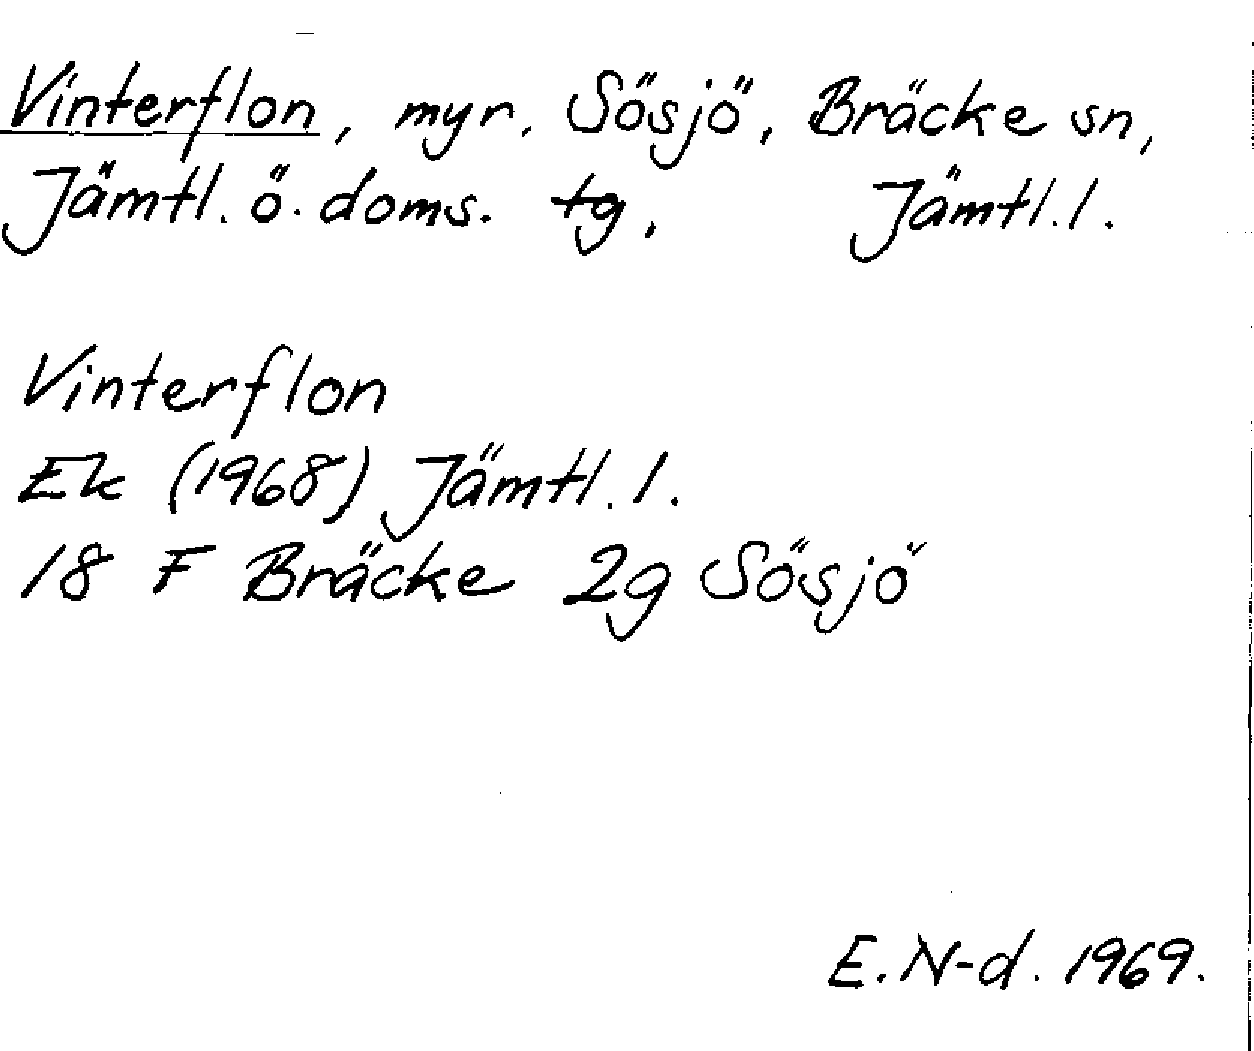 Vinterflon, myr. Sösjö, Bräcke sn,
Jämtl. ö. doms. tg. Jämtl. l.
Vinterflon
Ek (1968) Jämtl. l.
18 F Bräcke 2g Sösjö
E. N-d. 1969.